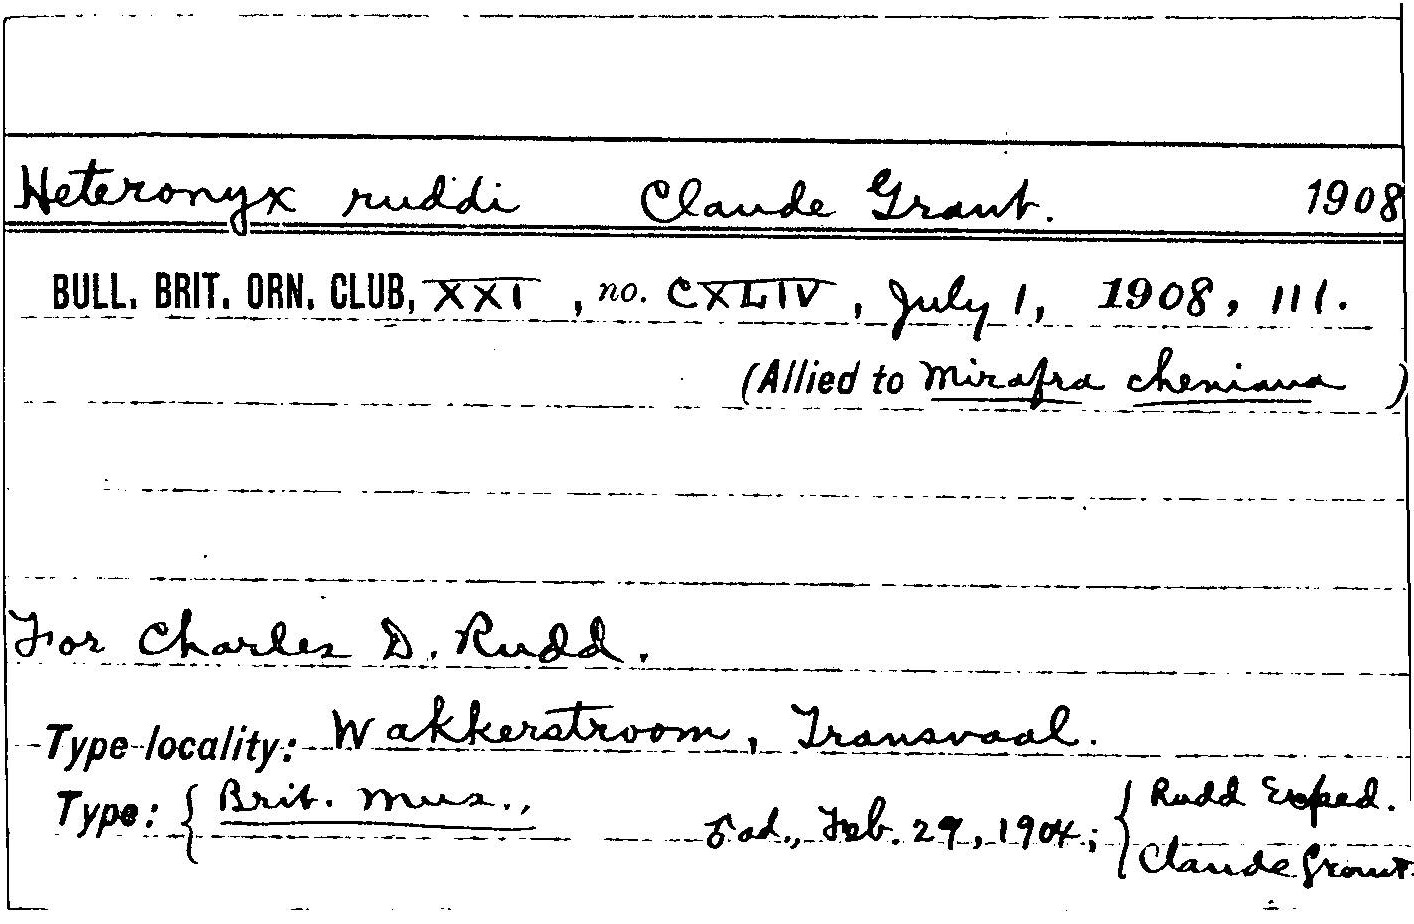 Heteronyx ruddi Claude Grant. 1908
BULL. BRIT. ORN. CLUB, XXI, no. CXLIV, July 1, 1908, 111.
(Allied to Mirafra cheniana)
For Charles D. Rudd.
Type locality: Wakkerstroom, Transvaal.
Type: { Brit. Mus., ad., Feb. 29, 1904; { Rudd Exped.
Claude Grant